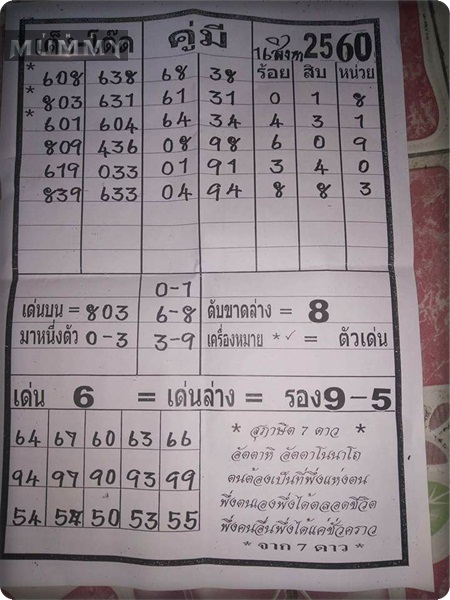 MUMMY
เด็ด คู่มี
16 สิงหา 2560
ร้อย สิบ หน่วย
* 608 638 68 38
* 803 631 61 31 0 1 8
* 601 604 64 34 4 3 1
809 436 08 98 6 0 9
619 033 01 91 3 4 0
839 633 04 94 8 8 3
0-1
เด่นบน = 803 6-8 ดับขาดล่าง = 8
มาหนึ่งตัว 0-3 3-9 เครื่องหมาย *✓ = ตัวเด่น
เด่น 6 = เด่นล่าง = รอง 9-5
64 67 60 63 66
94 97 90 93 99
54 57 50 53 55
* สุภาษิต 7 ดาว *
อัตตาหิ อัตตาโนนาโถ
ตนต้องเป็นที่พึ่งแห่งตน
พึ่งตนเองพึ่งได้ตลอดชีวิต
พึ่งคนอื่นพึ่งได้แค่ชั่วคราว
* จาก 7 ดาว *